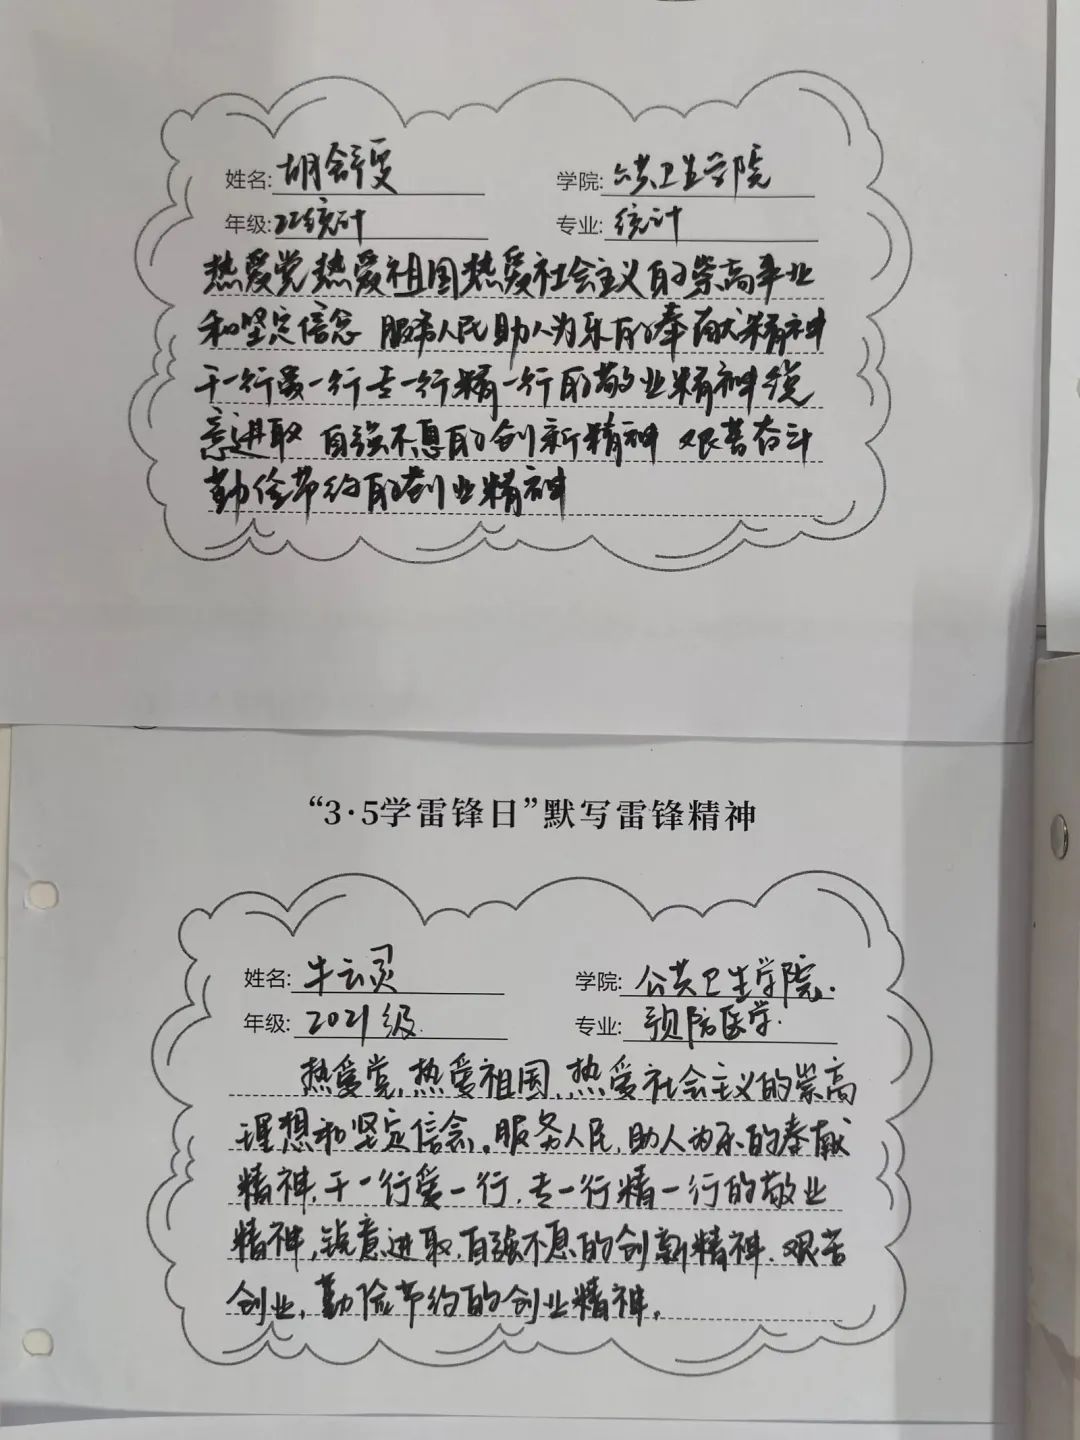 姓名: 胡舒雯 学院: 公共卫生学院
年级: 22统计 专业: 统计
热爱党热爱祖国热爱社会主义的崇高事业
和坚定信念 服务人民 助人为乐的奉献精神
干一行爱一行专一行精一行的敬业精神锐
意进取 自强不息的创新精神 艰苦奋斗
勤俭节约的创业精神
“3·5学雷锋日”默写雷锋精神
姓名: 牛云灵 学院: 公共卫生学院.
年级: 2021级. 专业: 预防医学.
热爱党,热爱祖国,热爱社会主义的崇高
理想和坚定信念。服务人民,助人为乐的奉献
精神,干一行爱一行,专一行精一行的敬业
精神,锐意进取,自强不息的创新精神.艰苦
创业,勤俭节约的创业精神。